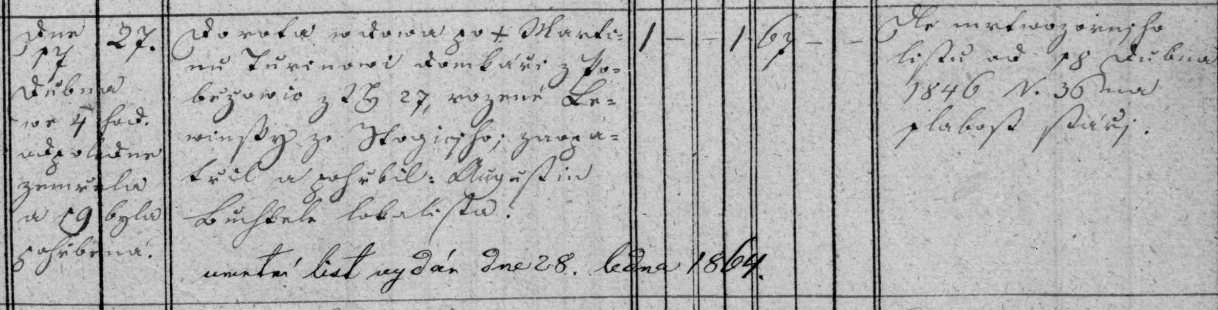 Dne
17
Dubna
we 4 hod.
odpoledne
zemřela
a 19 byla
pohřbená.
27.
Dorota wdowa po + Marti-
nu Turinowi domkáři z Po-
bezowic z N 27, rozená Le-
winský ze Stogicjho; zaopa-
třil a pohřbil: Augustin
Buchtele lokalista.
úmrtní list vydán dne 28. ledna 1864.
1 – – 1 67 – –
Dle mrtwozorнjho
listu od 18 Dubna
1846 N. 36 na
slabost stářj.